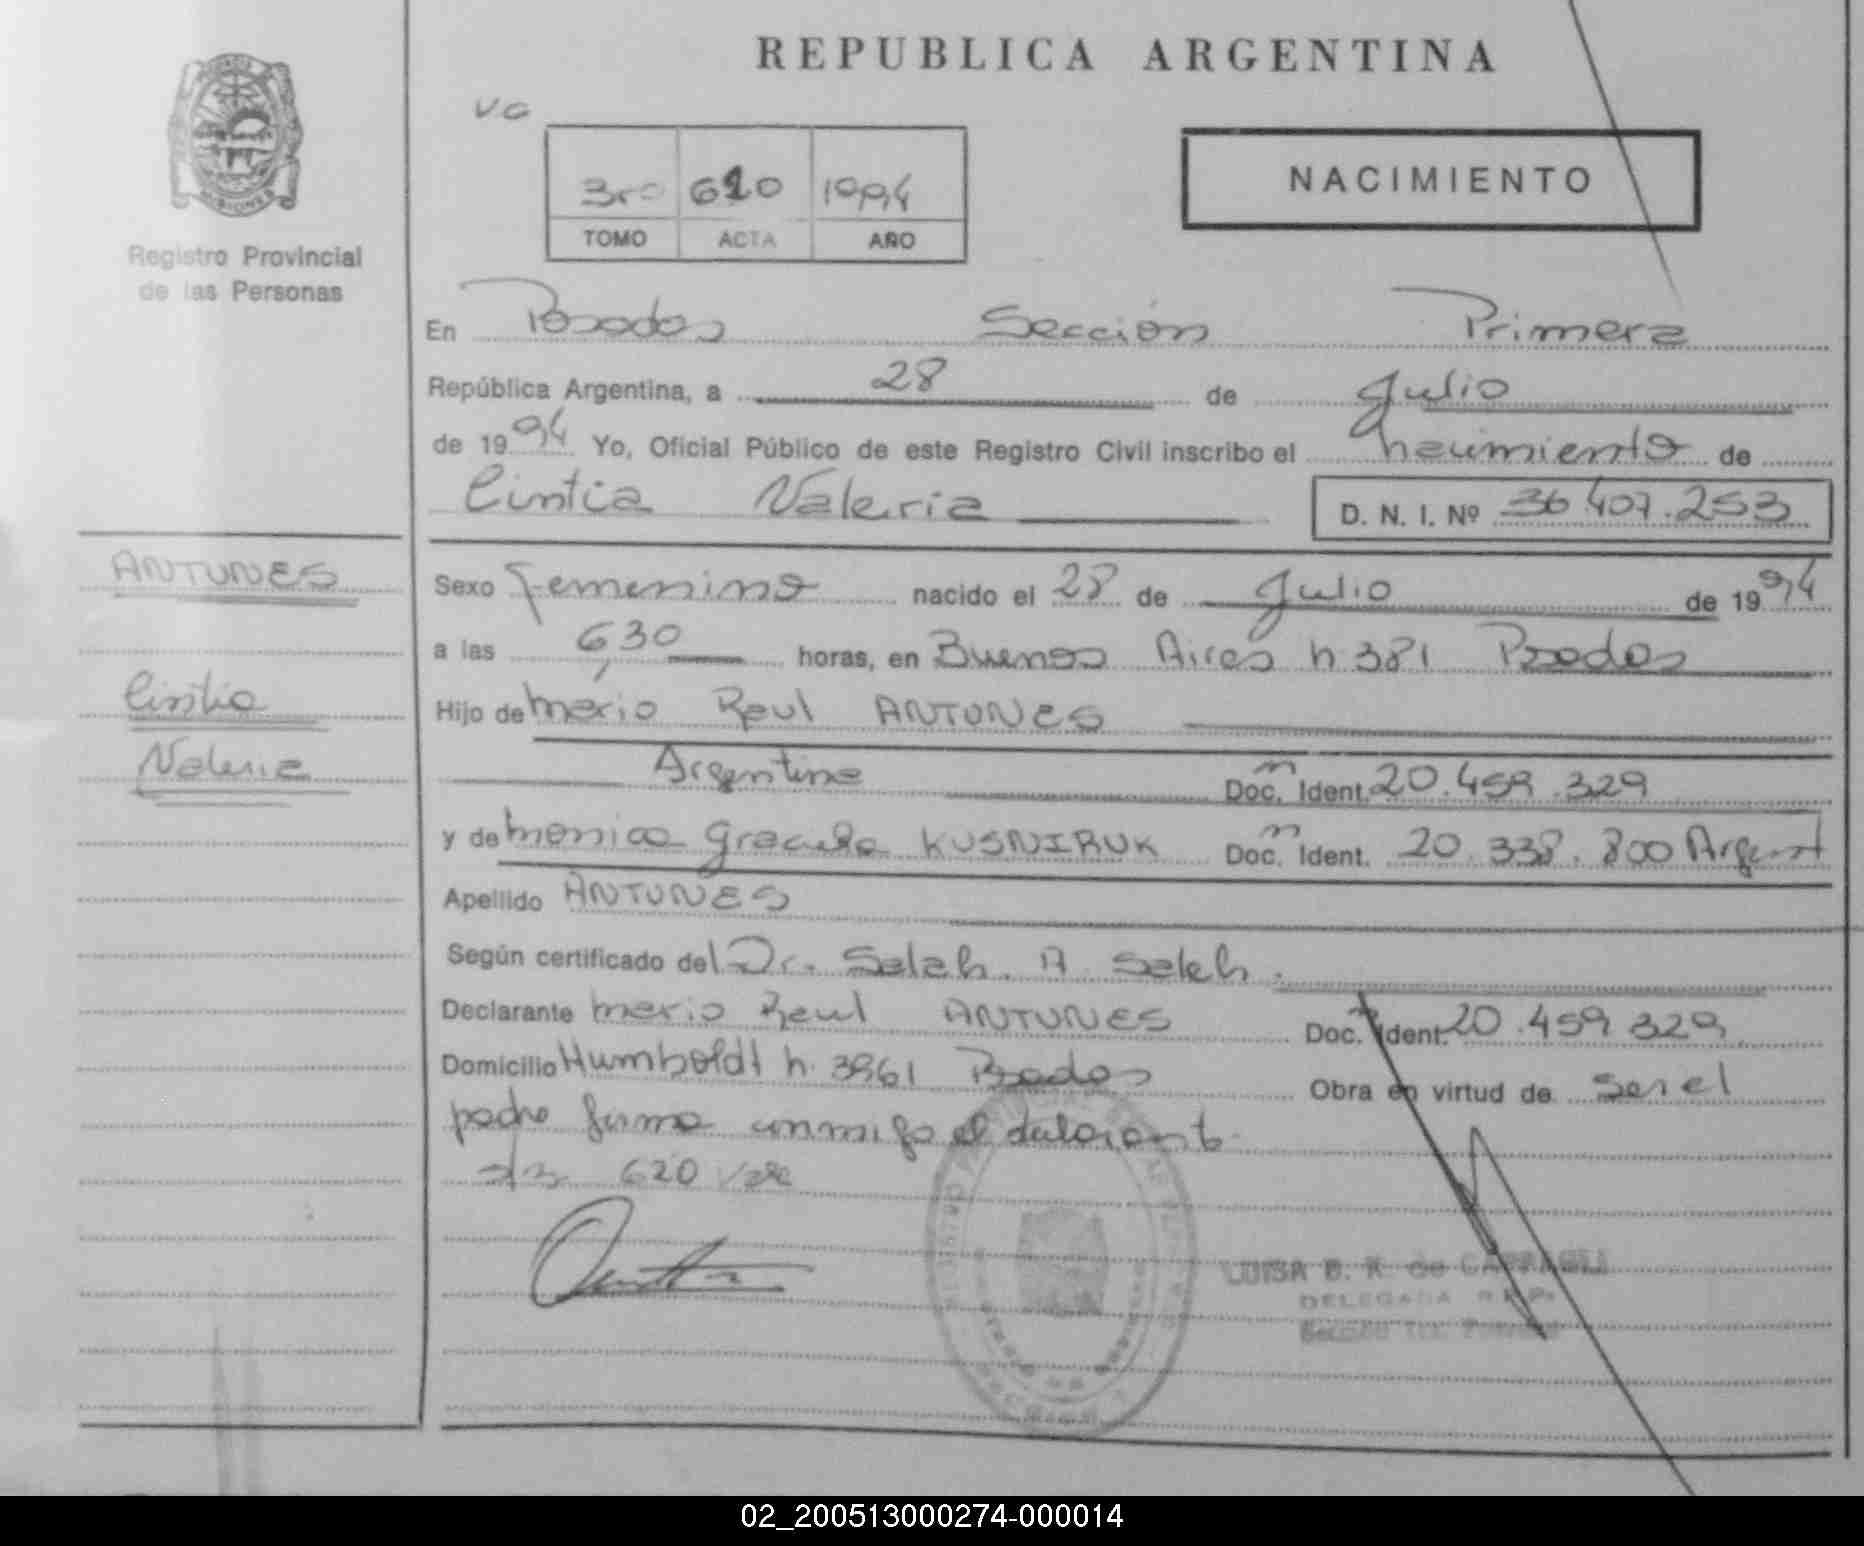 REPUBLICA ARGENTINA
V.G
NACIMIENTO
3ro 610 1994
TOMO ACTA AÑO
MISIONES
Registro Provincial
de las Personas
En Posadas Sección Primera
República Argentina, a 28 de Julio
de 1994 Yo, Oficial Público de este Registro Civil inscribo el nacimiento de
Cintia Valeria D. N. I. Nº 36 407.253
ANTUNES
Cintia
Valeria
Sexo Femenino nacido el 28 de Julio de 1994
a las 6,30 horas, en Buenos Aires n 381 Posadas
Hijo de Mario Raul ANTUNES
Argentina Doc. Ident. 20.459.329
y de Monica Graciela KUSNIRUK Doc. Ident. 20.338.800 Argent
Apellido ANTUNES
Según certificado del Dr. Saleh. A Saleh.
Declarante Mario Raul ANTUNES Doc. Ident. 20.459.329
Domicilio Humboldt n. 3861 Posadas Obra en virtud de Ser el
padre firma conmigo el declarante
620 Vale
LUISA B. K. de
DELEGADA R.P.P.
02_200513000274-000014